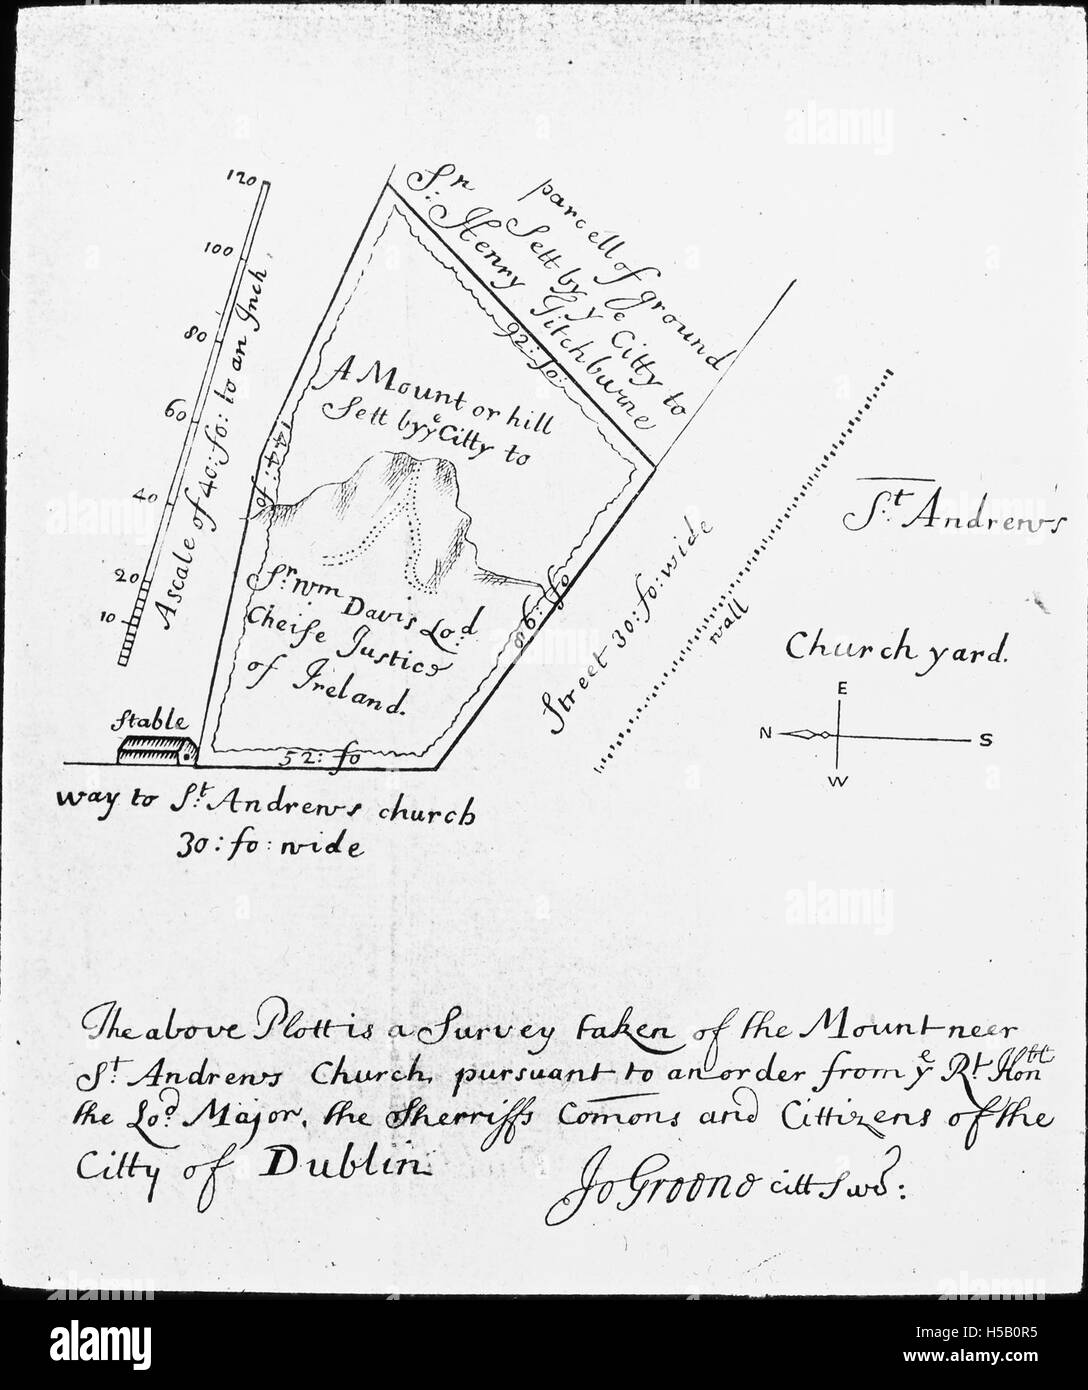 120
100
80
60
40
20
10
A scale of 40: fo: to an Inch.
parcell of ground
Sett by yᵉ Citty to
Sʳ: Henry Titchburne
92: fo:
A Mount or hill
Sett by yᵉ Citty to
144: fo:
Sʳ: Wm Davis Lo:ᵈ
Cheife Justice
of Ireland.
86: fo
52: fo
Street 30: fo: wide
wall
Sᵗ: Andrews
Church yard.
E
N
S
W
Stable
way to Sᵗ: Andrews church
30: fo: wide
The above Plott is a Survey taken of the Mount neer
Sᵗ: Andrews Church, pursuant to an order from yᵉ Rᵗ: Honᵇˡᵗ
the Lo:ᵈ Major, the Sherriffs Comons and Cittizens of the
Citty of Dublin
Jo Greene citt Survᵒʳ:
alamy
Image ID: H5B0R5
www.alamy.com